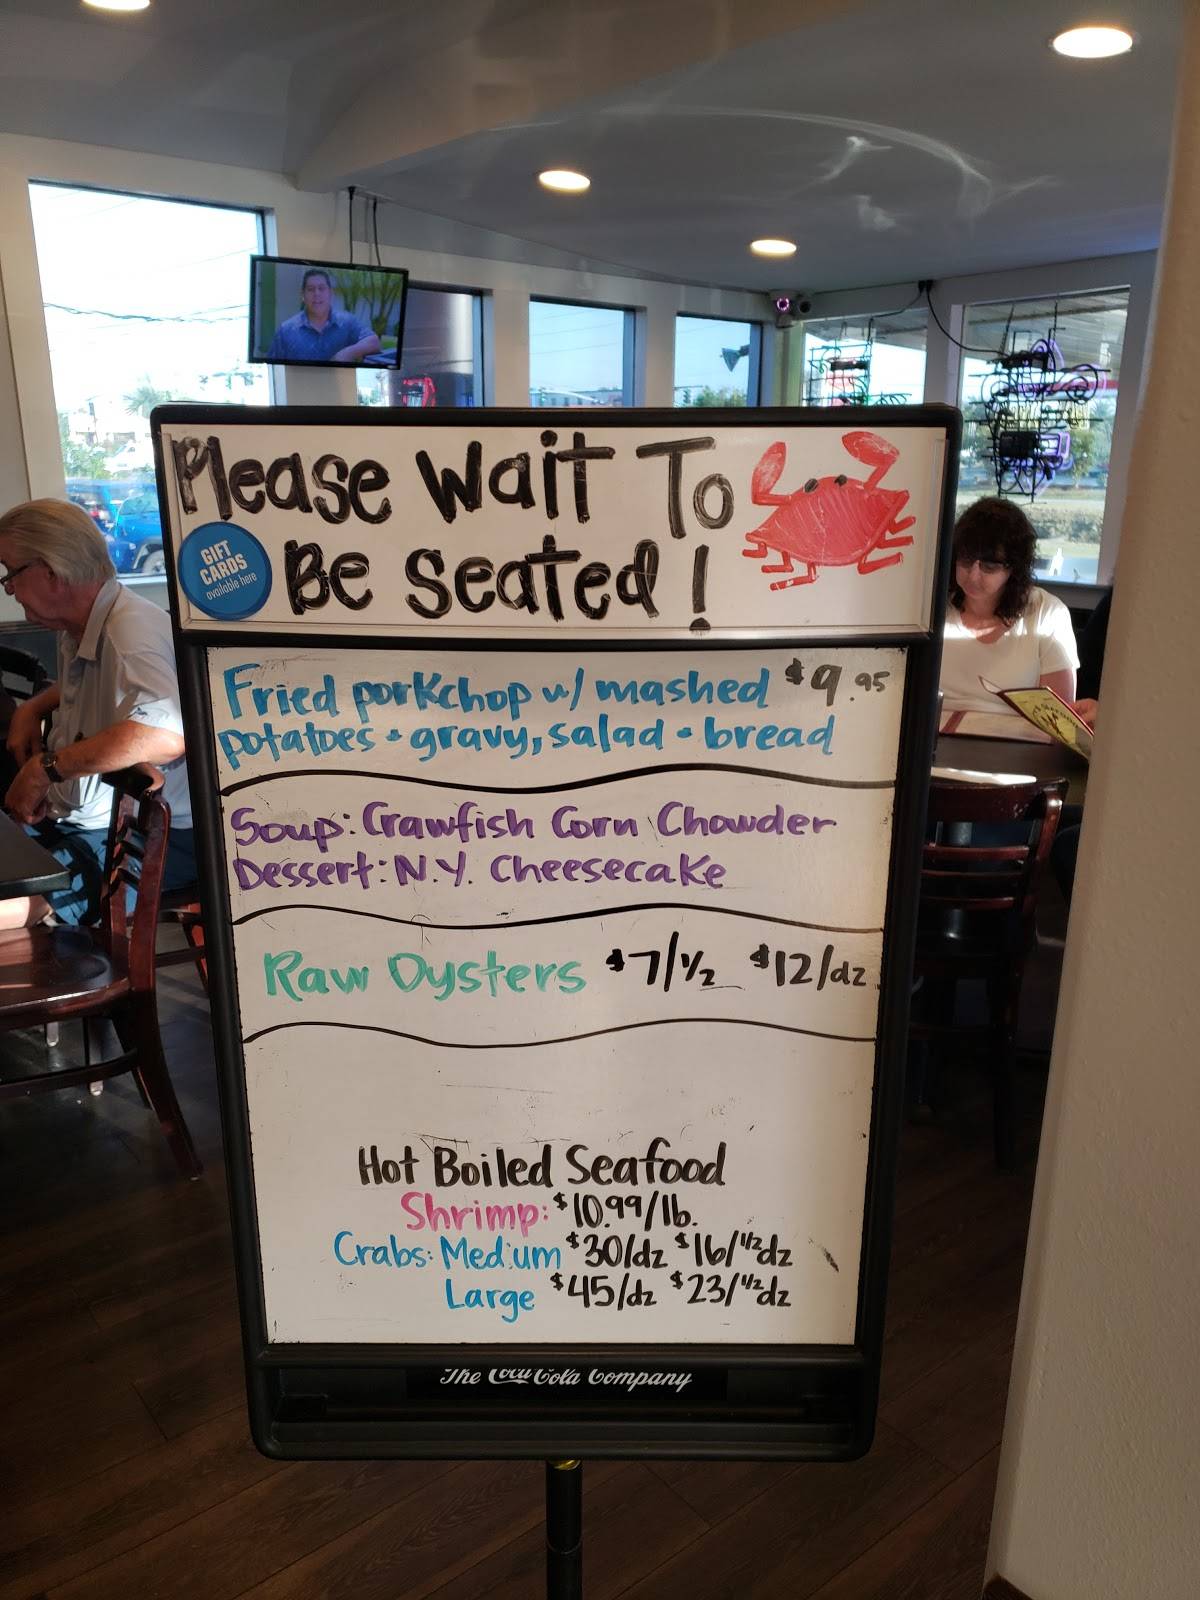 Please Wait To
Be Seated!
GIFT
CARDS
available here
Fried porkchop w/ mashed $9.95
potatoes • gravy, salad • bread
Soup: Crawfish Corn Chowder
Dessert: N.Y. Cheesecake
Raw Oysters $7/½ $12/dz
Hot Boiled Seafood
Shrimp: $10.99/lb.
Crabs: Medium $30/dz $16/½dz
Large $45/dz $23/½dz
The Coca-Cola Company